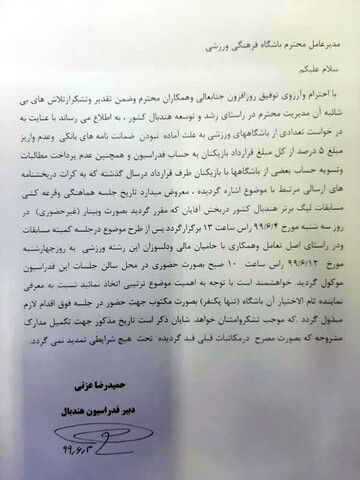 مدیرعامل محترم باشگاه فرهنگی ورزشی
سلام علیکم
با احترام وآرزوی توفیق روزافزون جنابعالی وهمکاران محترم وضمن تقدیر وتشکرازتلاش های بی
شائبه آن مدیریت محترم در راستای رشد و توسعه هندبال کشور ، به اطلاع می رساند با عنایت به
درخواست تعدادی از باشگاههای ورزشی به علت آماده نبودن ضمانت نامه های بانکی وعدم واریز
مبلغ ۵ درصد از کل مبلغ قرارداد بازیکنان به حساب فدراسیون و همچنین عدم پرداخت مطالبات
وتسویه حساب بعضی از باشگاهها با بازیکنان طرف قرارداد درسال گذشته که به کرات دربخشنامه
های ارسالی مرتبط با موضوع اشاره گردیده ، معروض میدارد تاریخ جلسه هماهنگی وقرعه کشی
مسابقات لیگ برتر هندبال کشور دربخش آقایان که مقرر گردید بصورت وبینار (غیرحضوری) در
روز سه شنبه مورخ ۹۹/۶/۴ راس ساعت ۱۳ برگزارگردد پس از طرح موضوع درجلسه کمیته مسابقات
ودر راستای اصل تعامل وهمکاری با حامیان مالی ودلسوزان این رشته ورزشی به روزچهارشنبه
مورخ ۹۹/۶/۱۲ راس ساعت ۱۰ صبح بصورت حضوری در محل سالن جلسات این فدراسیون
موکول گردید. خواهشمند است با توجه به اهمیت موضوع ترتیبی اتخاذ نمائید نسبت به معرفی
نماینده تام الاختیار آن باشگاه (تنها یکنفر) بصورت مکتوب جهت حضور در جلسه فوق اقدام لازم
مبذول گردد .که موجب تشکروامتنان خواهد. شایان ذکر است تاریخ مذکور جهت تکمیل مدارک
مشروحه که بصورت مصرح درمکاتبات قبلی قید گردیده تحت هیچ شرایطی تمدید نمی گردد.
حمیدرضا عزتی
دبیر فدراسیون هندبال
۹۹٫۶٫۳